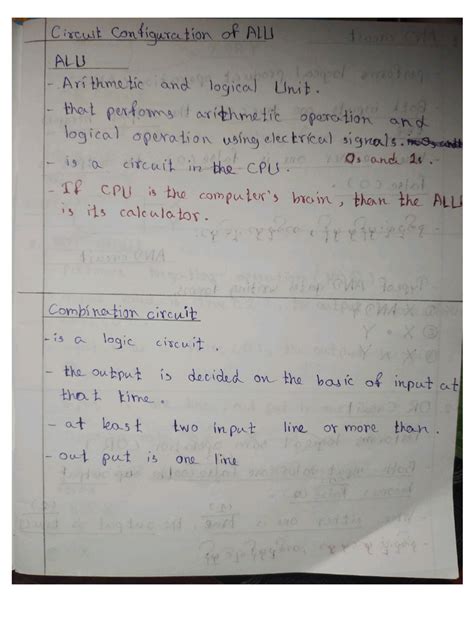 Circuit Configuration of ALU
ALU
- Arithmetic and logical Unit.
- that performs arithmetic operation and
logical operation using electrical signals.
0s and 1s.
- is a circuit in the CPU.
- If CPU is the computer's brain, than the ALU
is its calculator.
Combination circuit
- is a logic circuit.
- the output is decided on the basic of input at
that time.
- at least two input line or more than.
- out put is one line